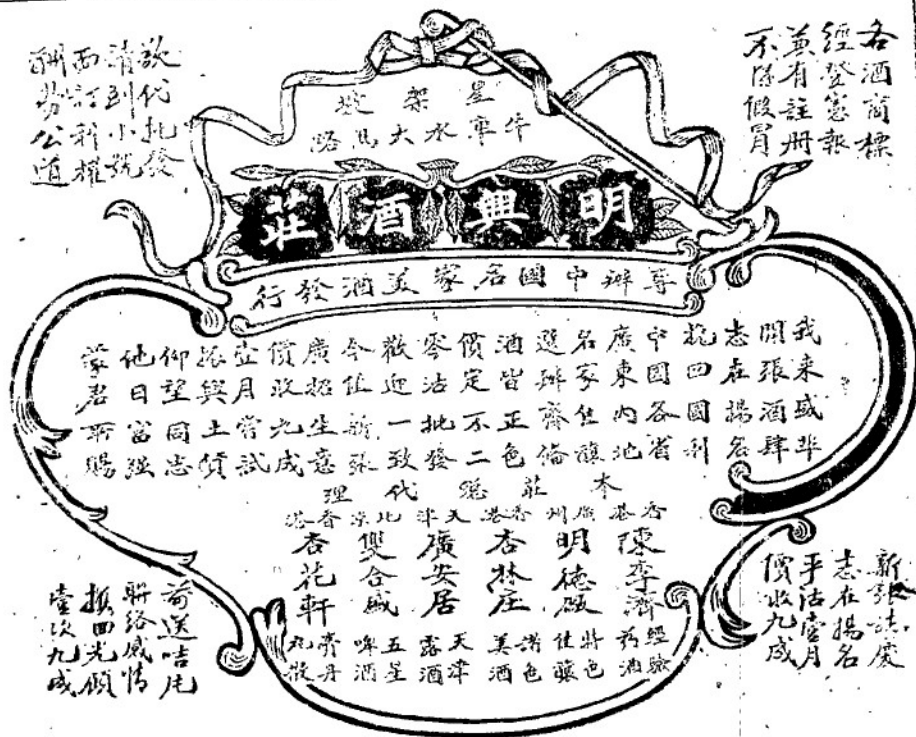 各酒商標
經登憲報
兼有註冊
不除假冒
欲代批發
請到小號
西江利權
酬勞公道
星架坡
牛車水大馬路
明興酒莊
專辦中國名家美酒發行
我來感非
開張酒肆
志在揚名
挽回國利
中國各省
廣東內地
名家佳釀
選辦齊備
酒皆正色
價定不二
零沽批發
歡迎一致
今值新張
廣招生意
價收九成
壹月當試
振興土貨
仰望同志
他日富强
蒙君所賜
本莊總代理
香港 陳李濟 經驗葯酒
廣州 明德號 特色佳釀
香港 杏林庄 諸色美酒
天津 廣安居 天津露酒
北京 雙合盛 五星啤酒
香港 杏花軒 膏丹丸散
新張誌慶
志在揚名
平沽壹月
價收九成
前送咭片
聯絡感情
損回光顧
壹次九成